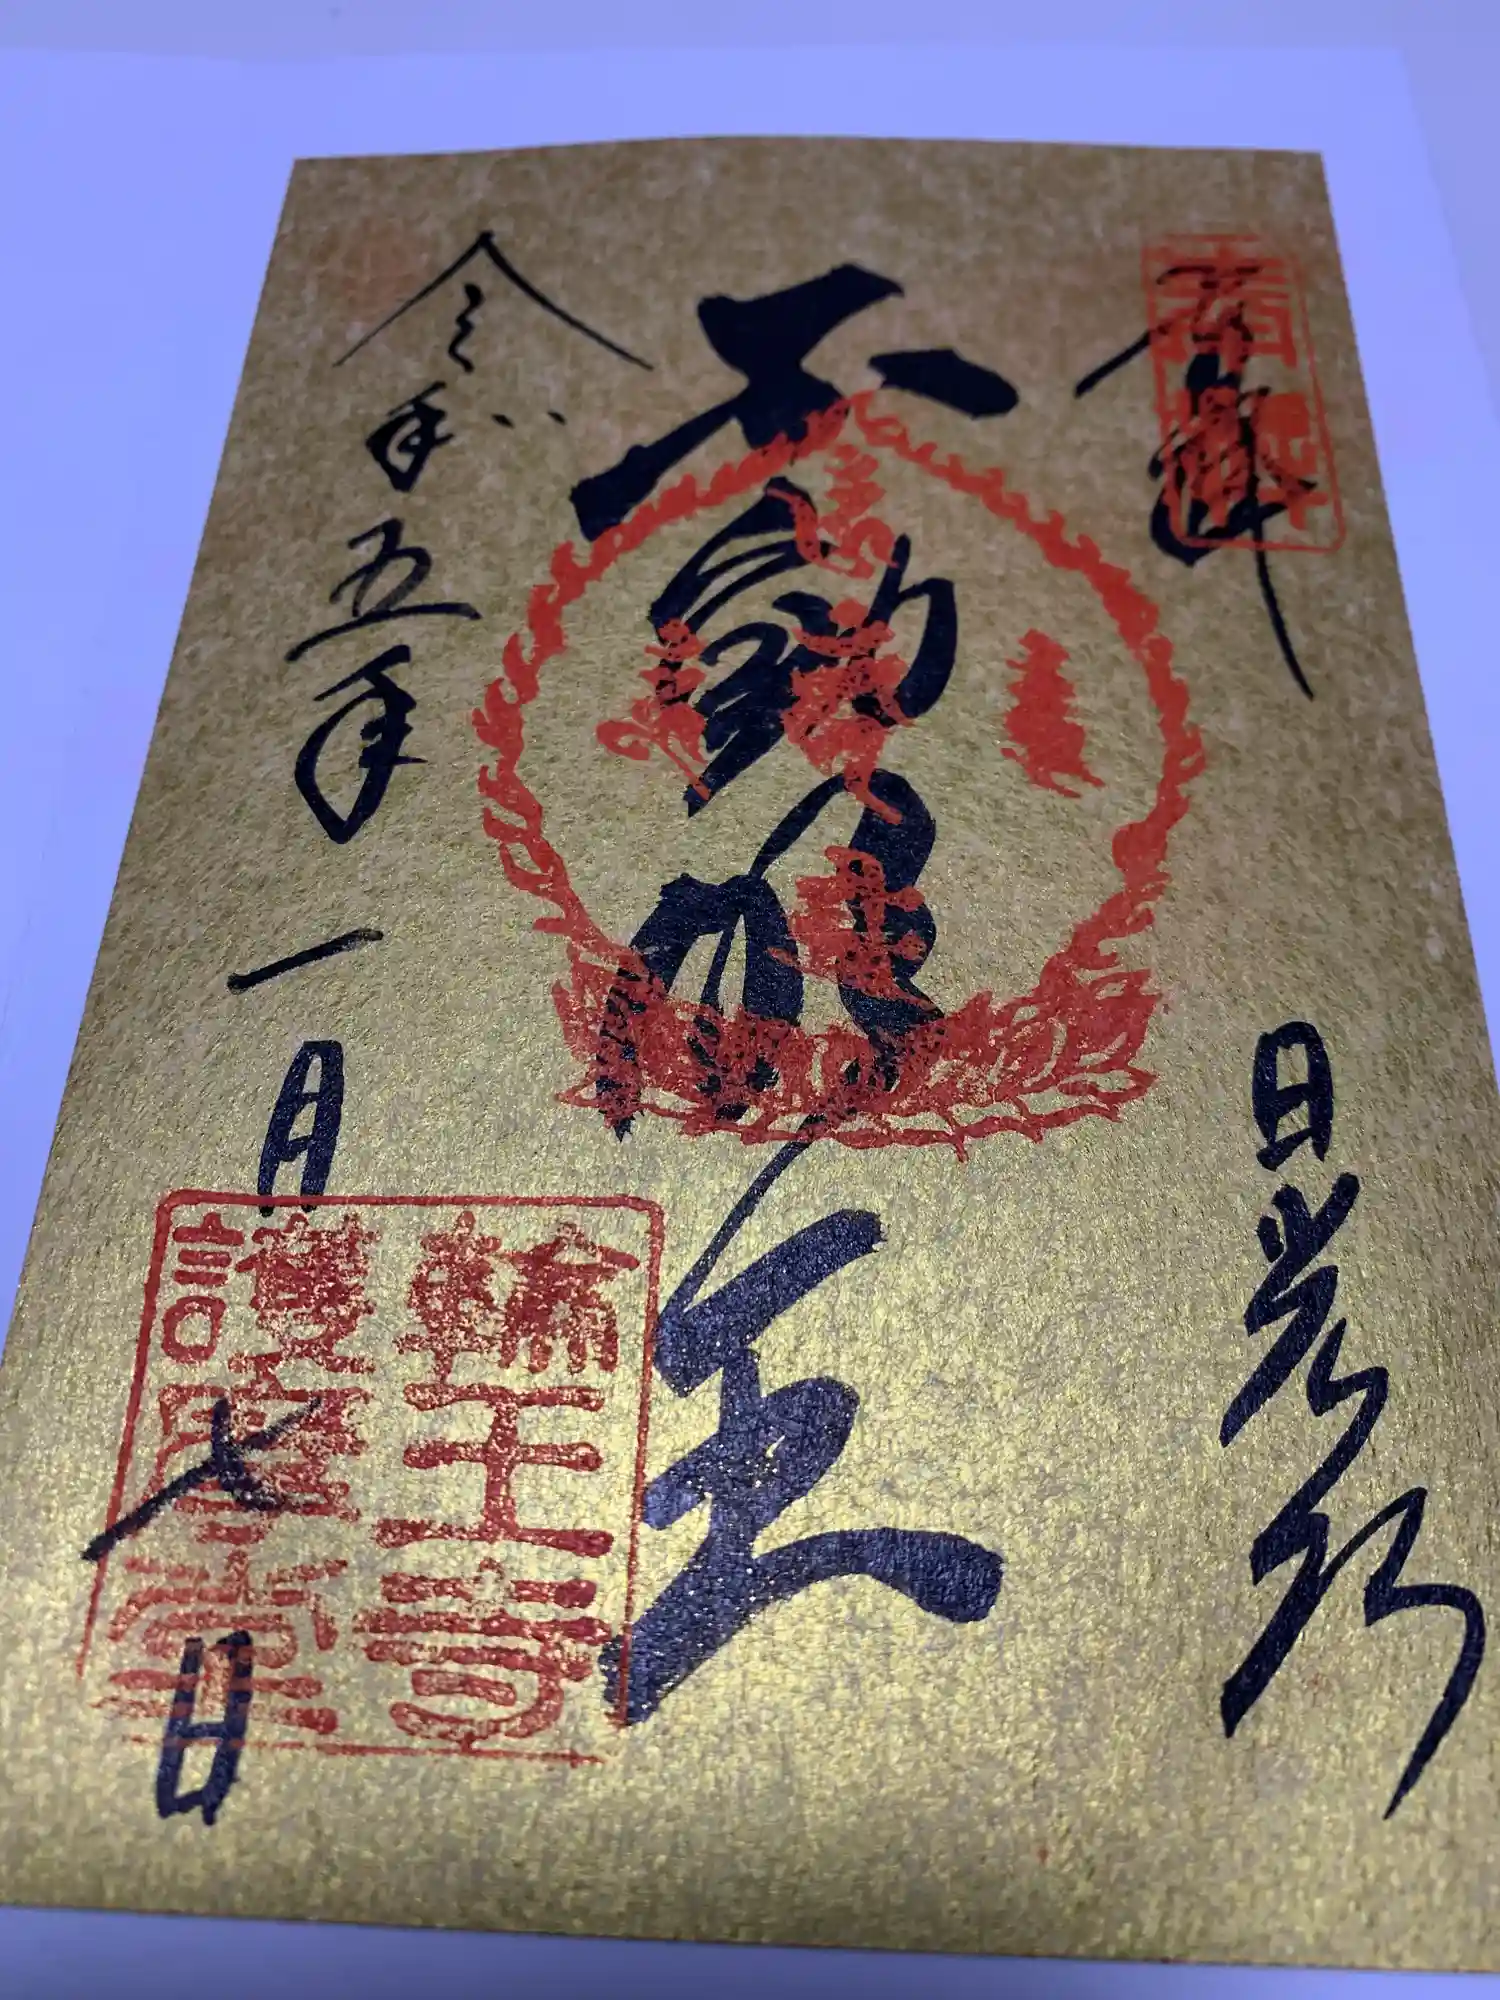 奉拝
日光山
不動明王
令和五年一月七日
輪王寺
護摩堂